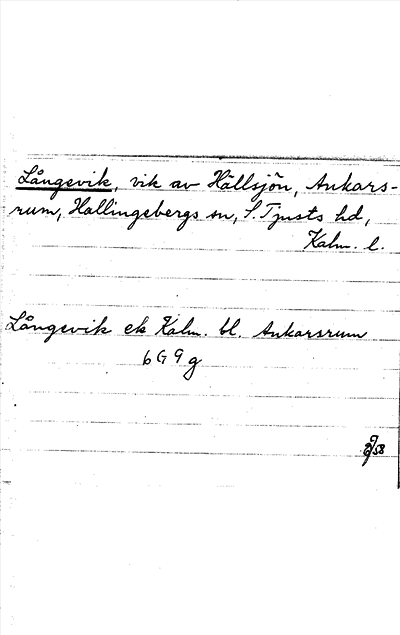 Långsvik, vik av Hällsjön, Ankars-
rum, Hallingebergs sn, S. Tjusts hd,
Kalm. l.
Långsvik ek Kalm. bl. Ankarsrum
6G 9g